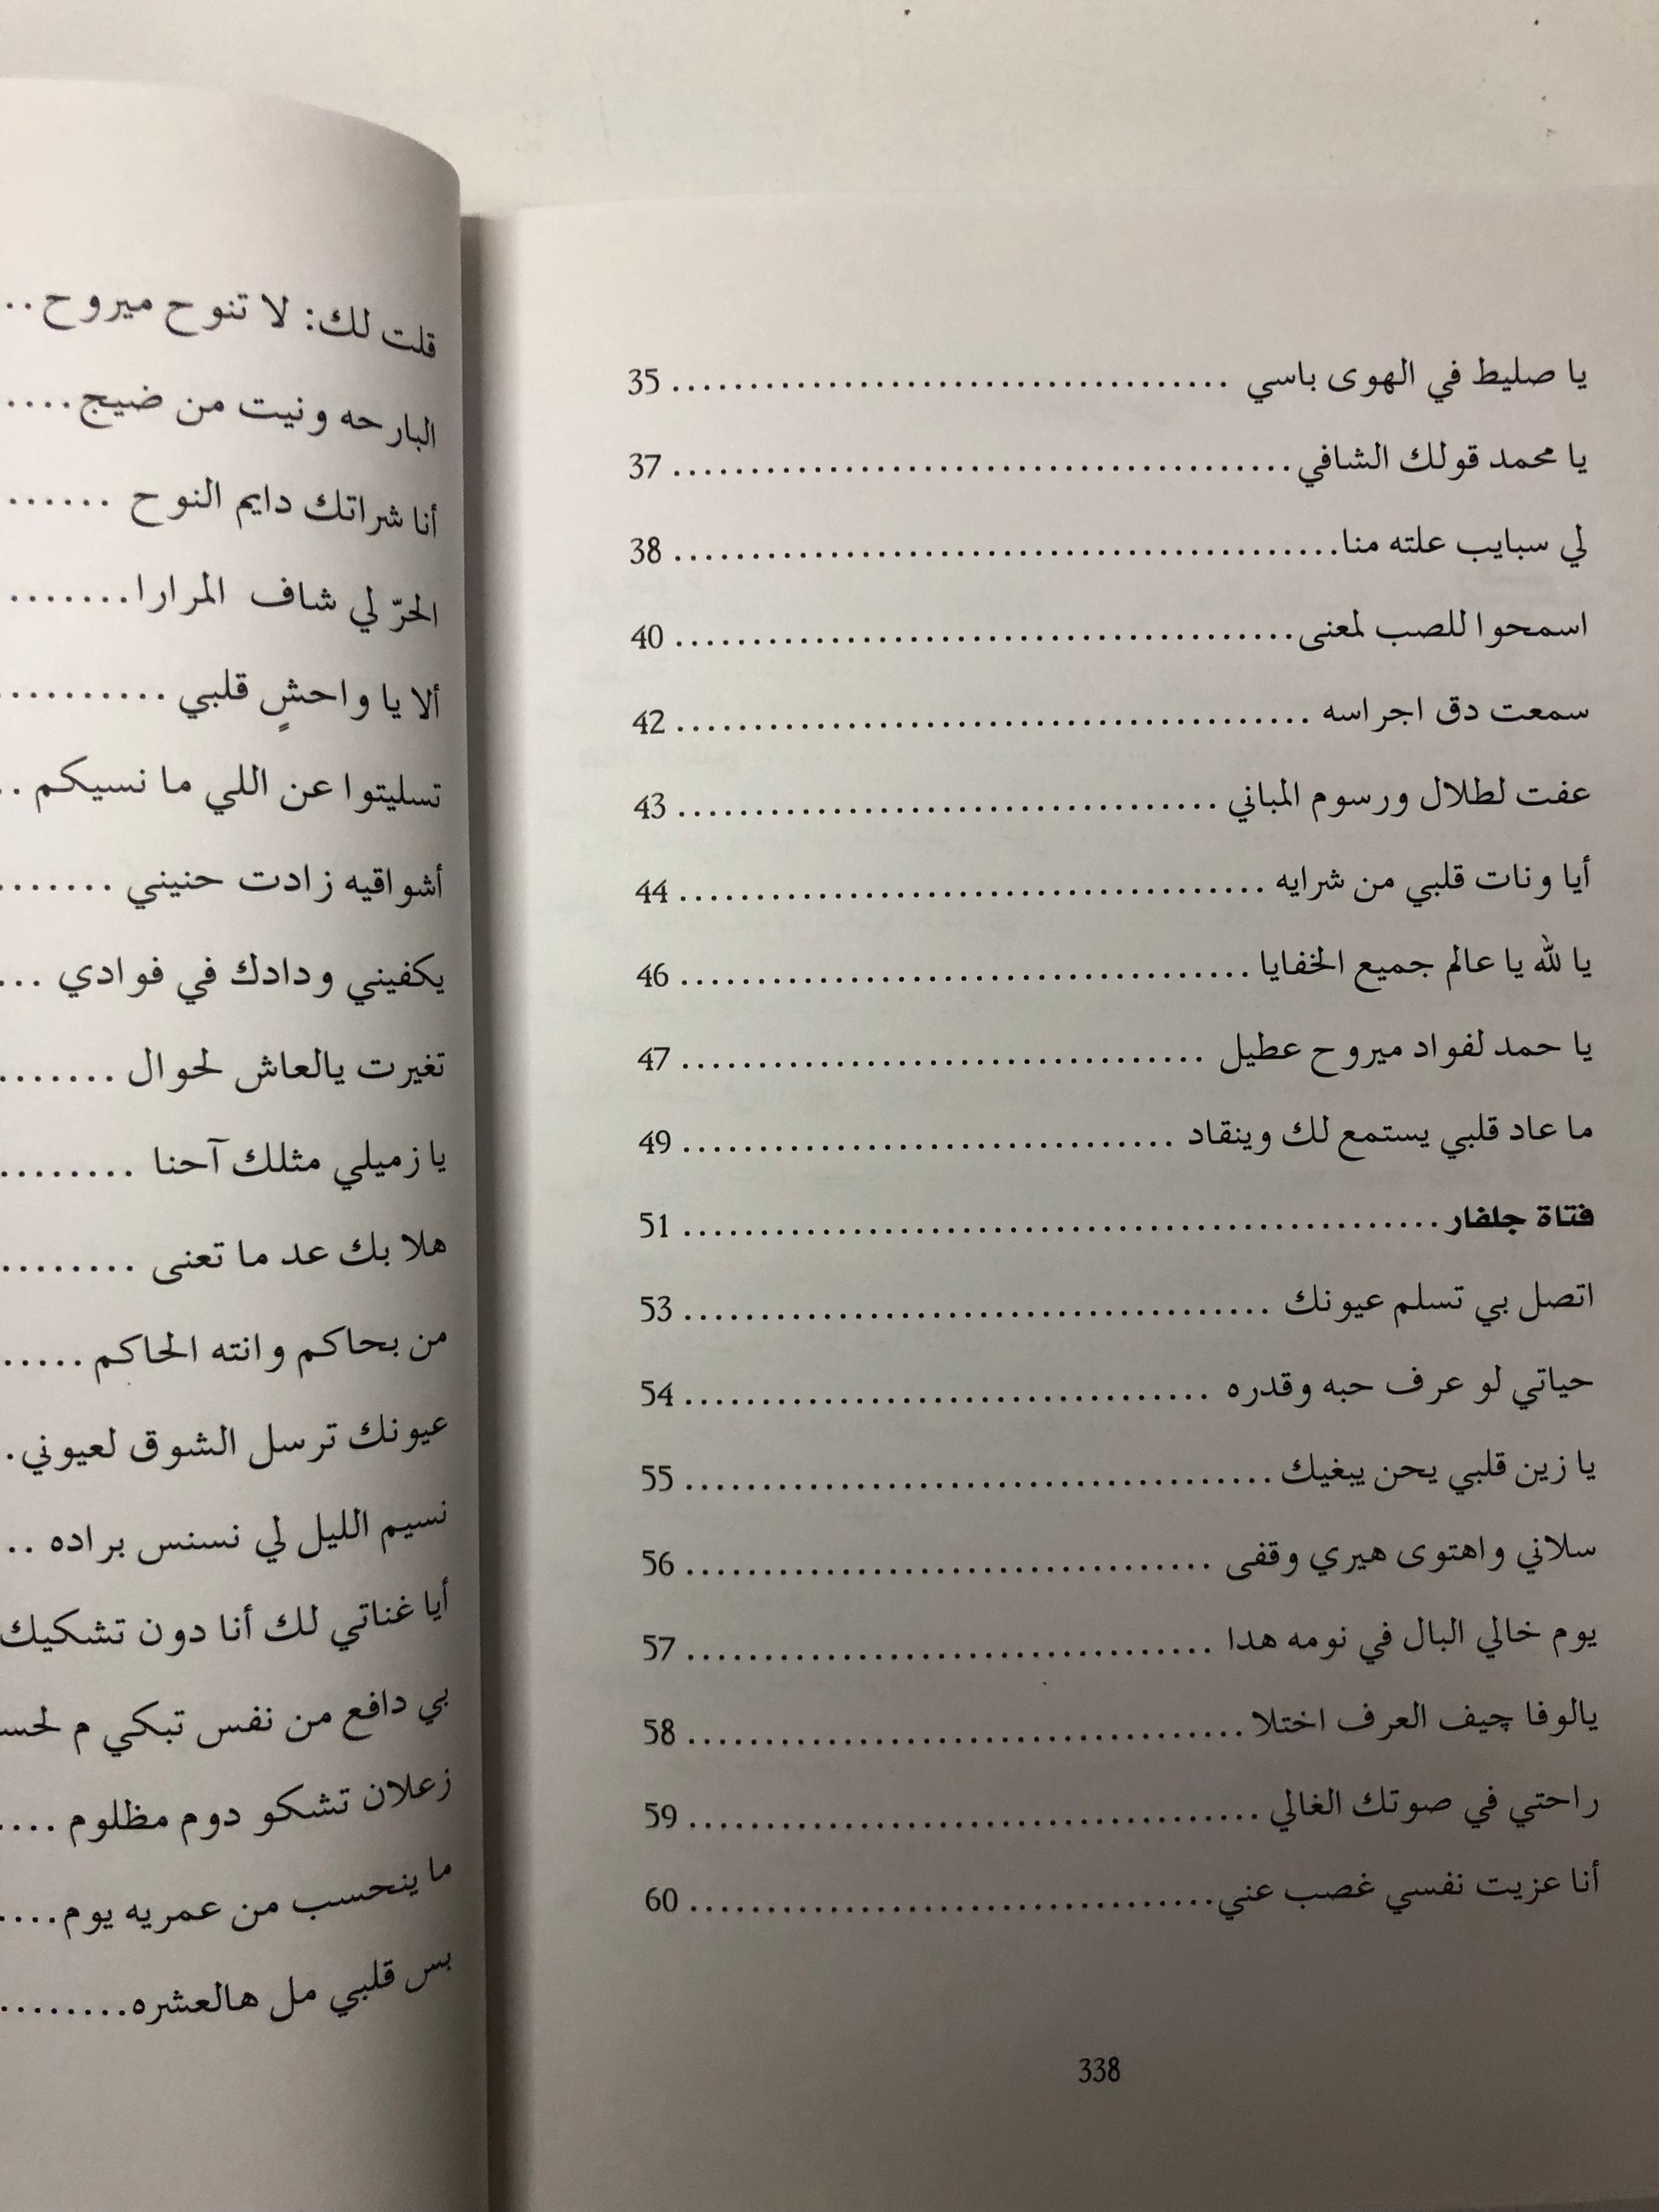 يا صليط في الهوى باسي ........ 35
يا محمد قولك الشافي ........ 37
لي سبايب علته منا ........ 38
اسمحوا للصب لمعنى ........ 40
سمعت دق اجراسه ........ 42
عفت لطلال ورسوم المباني ........ 43
أيا ونات قلبي من شرايه ........ 44
يا لله يا عالم جميع الخفايا ........ 46
يا حمد لفواد ميروح عطيل ........ 47
ما عاد قلبي يستمع لك وينقاد ........ 49
فتاة جلفار ........ 51
اتصل بي تسلم عيونك ........ 53
حياتي لو عرف حبه وقدره ........ 54
يا زين قلبي يحن يبغيك ........ 55
سلاني واهتوى هيري وقفى ........ 56
يوم خالي البال في نومه هدا ........ 57
يالوفا چيف العرف اختلا ........ 58
راحتي في صوتك الغالي ........ 59
أنا عزيت نفسي غصب عني ........ 60
338
قلت لك: لا تنوح ميروح ..
البارحه ونيت من ضيج ....
أنا شراتك دايم النوح ......
الحرّ لي شاف المرارا .......
ألا يا واحشٍ قلبي ..........
تسليتوا عن اللي ما نسيكم ..
أشواقيه زادت حنيني .......
يكفيني ودادك في فوادي ...
تغيرت يالعاش لحوال .......
يا زميلي مثلك آحنا ........
هلا بك عد ما تعنى ........
من بحاكم وانته الحاكم .....
عيونك ترسل الشوق لعيوني .
نسيم الليل لي نسنس براده ..
أيا غناتي لك أنا دون تشكيك
بي دافع من نفس تبكي م لحسـ
زعلان تشكو دوم مظلوم ....
ما ينحسب من عمريه يوم ....
بس قلبي مل هالعشره ........